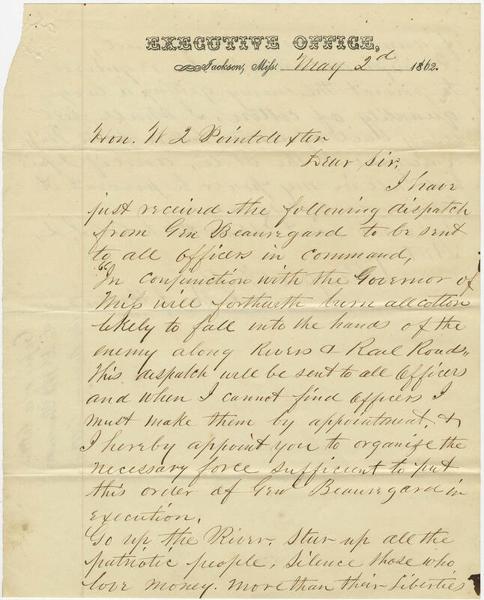 EXECUTIVE OFFICE,
Jackson, Miss. May 2d 1862.
Hon. W L Poindexter
Dear Sir,
I have
just received the following dispatch
from Gen Beauregard to be sent
to all officers in command,
"In conjunction with the Governor of
Miss will forthwith burn all cotton
likely to fall into the hands of the
enemy along Rivers & Rail Roads"
This dispatch will be sent to all Officers
and when I cannot find officers I
must make them by appointment, &
I hereby appoint you to organize the
necessary force sufficient to put
this order of Genl Beauregard in
execution.
Go up the River. Stur up all the
patriotic people, Silence those who
love money. more than their Liberties